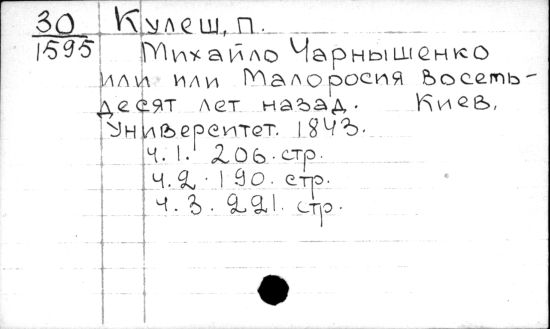 30 Кулеш, П.
1595 Михайло Чарнышенко
или или Малоросия восемь-
десят лет назад. Киев.
Университет. 1843.
ч. 1. 206. стр.
ч. 2. 190. стр.
ч. 3. 221. стр.